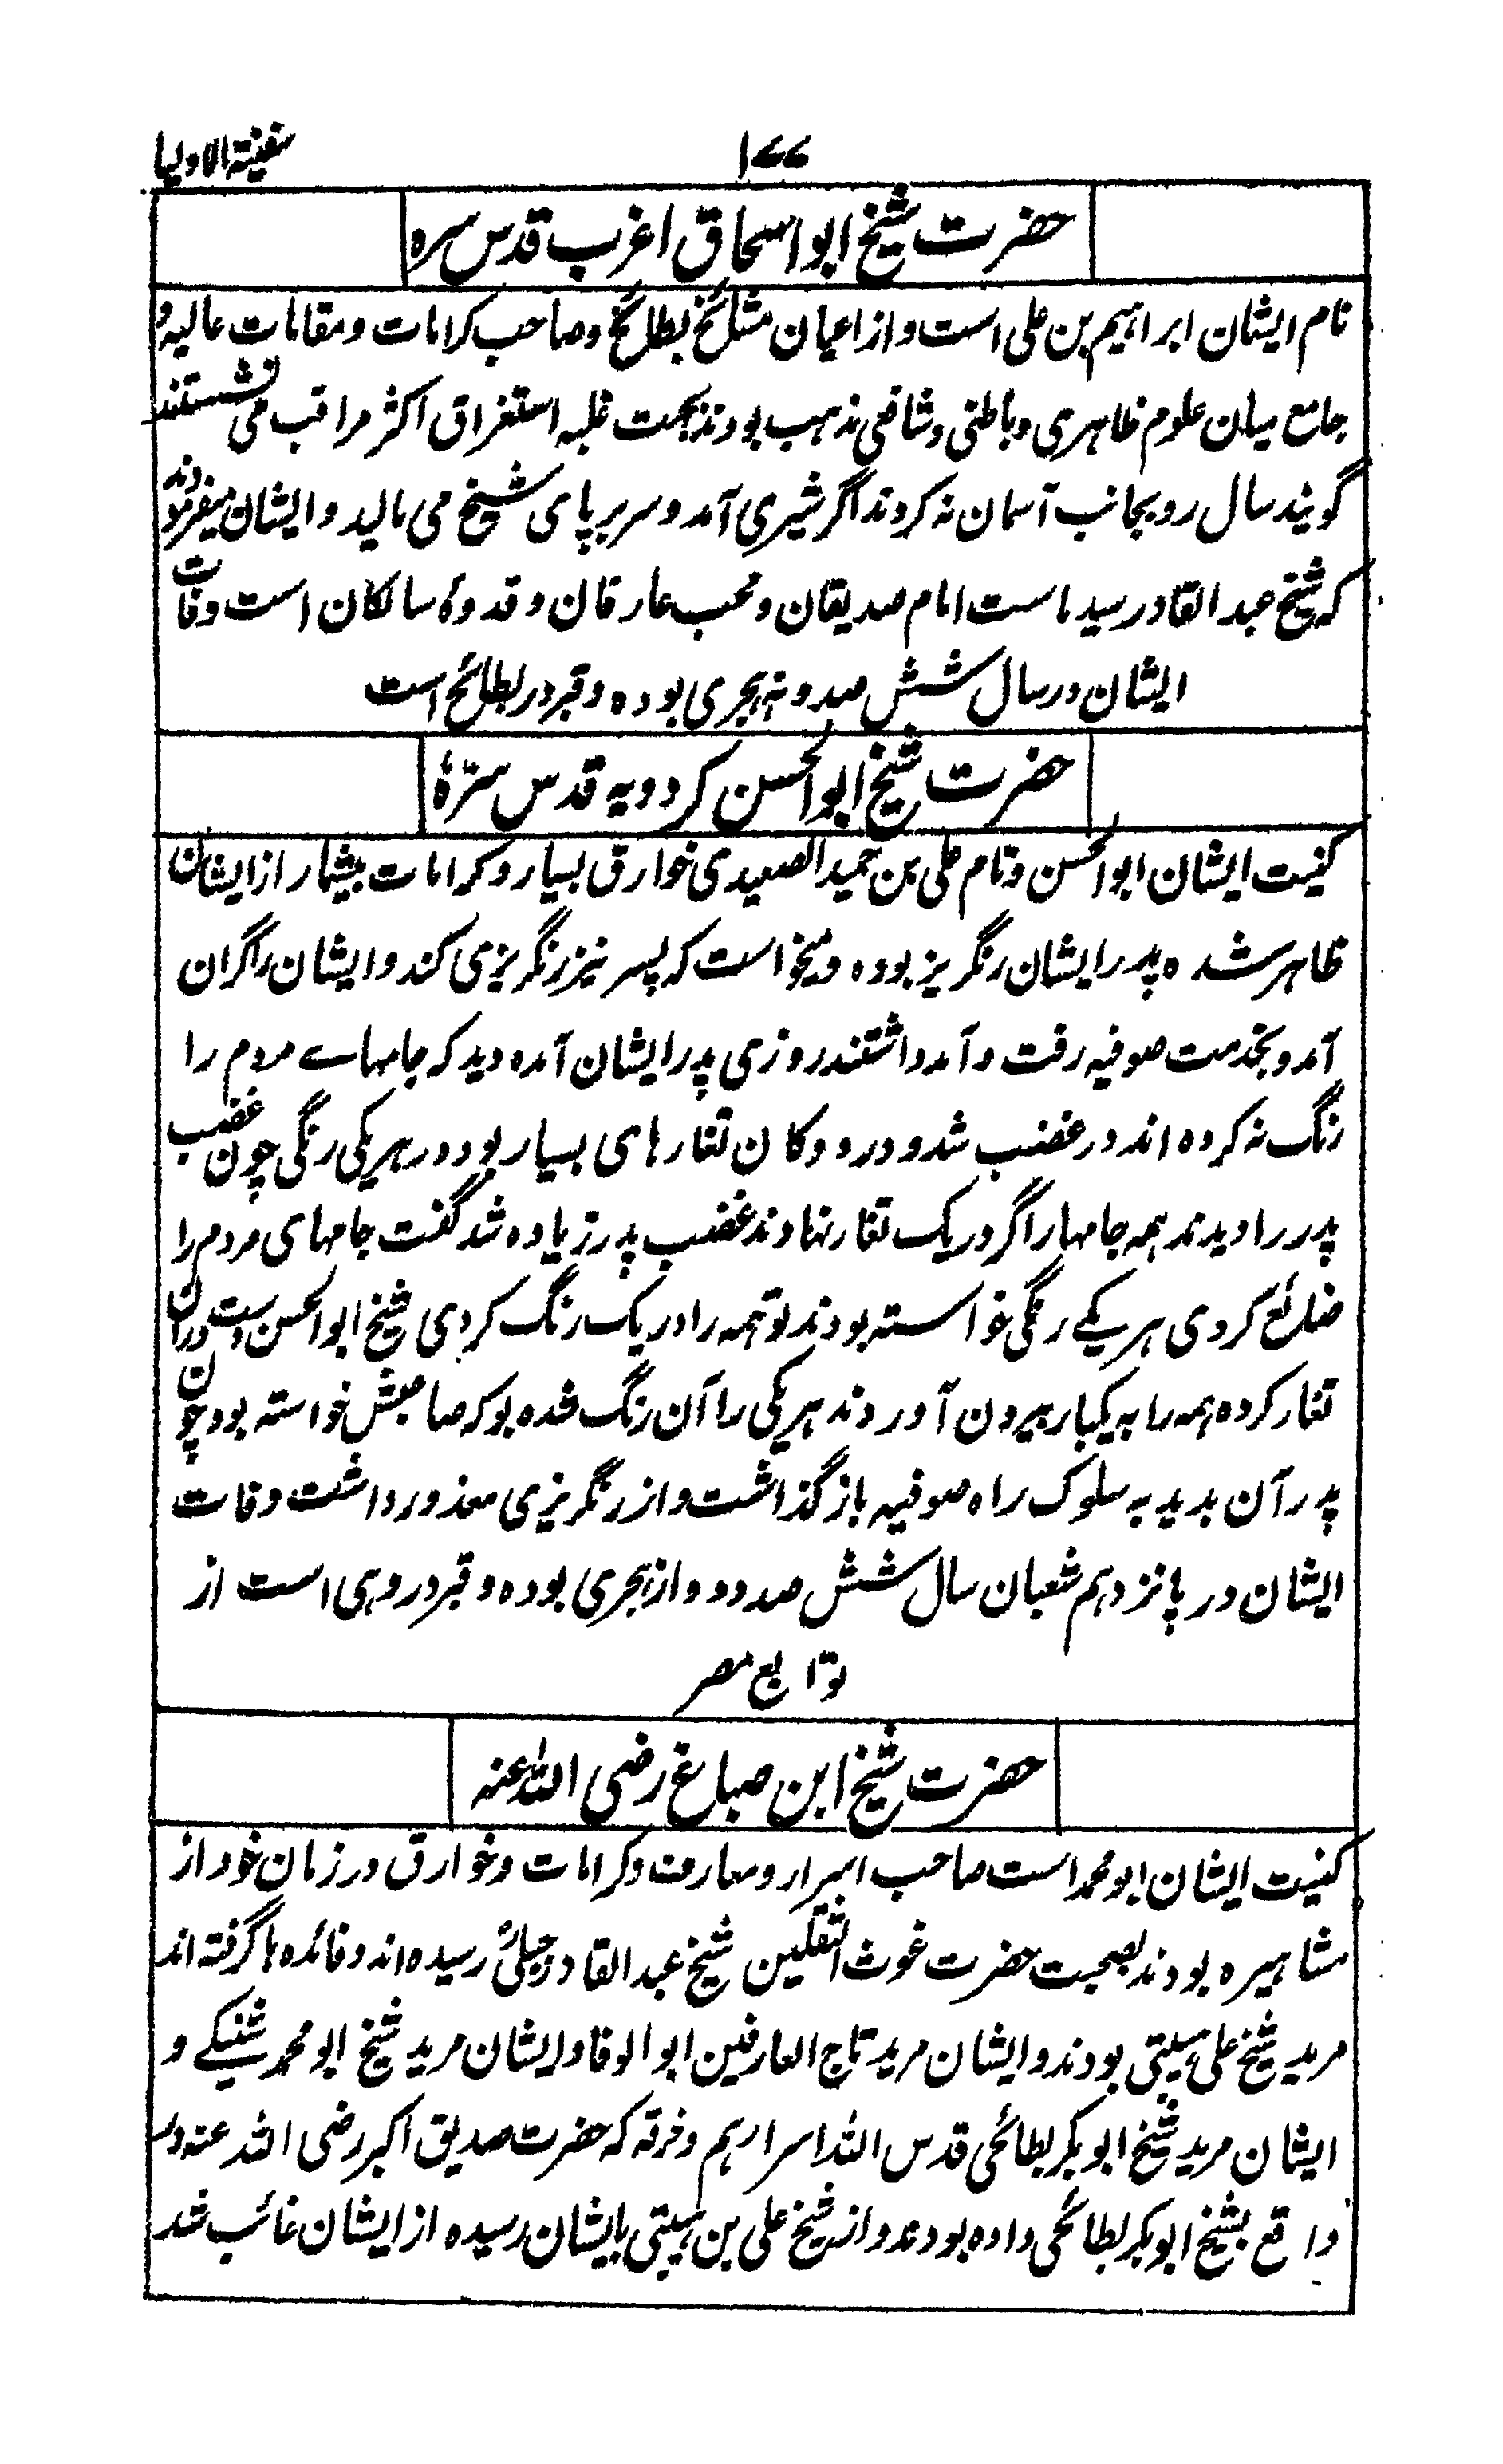 ۱۷۷
سفینة الاولیا
حضرت شیخ ابو اسحاق اغرب قدس سره
نام ایشان ابراہیم بن علی است و از اعیان مشائخ بطائح و صاحب کرامات و مقامات عالیه و
جامع میان علوم ظاہری و باطنی و شافعی مذہب بودند بجهت غلبه استغراق اکثر مراقب می نشستند
گویند سال رو بجانب آسمان نه کردند اگر شیری آمد و سر بر پای شیخ می مالید و ایشان میفرمودند
که شیخ عبد القادر سید ماست امام صدیقان و محب عارفان و قدوۀ سالکان است وفات
ایشان در سال شش صد و نه ہجری بوده و قبر در بطائح است
حضرت شیخ ابو الحسن کردویه قدس سرّهٗ
کنیت ایشان ابو الحسن و نام علی بن حمید الصعیدی خوارق بسیار و کرامات بیشمار از ایشان
ظاہر شده پدر ایشان رنگریز بوده و میخواست که پسر نیز رنگریزی کند و ایشان را گران
آمد و بخدمت صوفیه رفت و آمد داشتند روزی پدر ایشان آمده دید که جامہاے مردم را
رنگ نه کرده اند در غضب شد و در دوکان تغارہای بسیار بود در ہر یکی رنگی چون غضب
پدر را دیدند ہمه جامہا را گر در یک تغار نہادند غضب پدر زیاده شد گفت جامہای مردم را
ضائع کردی ہر یکے رنگی خواسته بودند تو ہمه را در یک رنگ کردی شیخ ابو الحسن دست دران
تغار کرده ہمه را به یکبار بیرون آوردند ہر یکی را آن رنگ شده بو که صاحبش خواسته بود چون
پدر آن بدید به سلوک راه صوفیه باز گذاشت و از رنگریزی معذور داشت وفات
ایشان در پانزدہم شعبان سال شش صد و دوازہجری بوده و قبر در وہی است از
توابع مصر
حضرت شیخ ابن صباغ رضی الله عنه
کنیت ایشان ابو محمد است صاحب اسرار و معارف و کرامات و خوارق در زمان خود از
مشاہیره بودند بصحبت حضرت غوث الثقلین شیخ عبد القادر جیلیؒ رسیده اند و فائده ہا گرفته اند
مرید شیخ علی ہیتی بودند و ایشان مرید تاج العارفین ابو الوفا و ایشان مرید شیخ ابو محمد شنبکے و
ایشان مرید شیخ ابو بکر بطائحی قدس الله اسرارہم و خرقه که حضرت صدیق اکبر رضی الله عنه در
واقع بشیخ ابو بکر بطائحی داده بودند و از شیخ علی بن ہیتی بایشان رسیده از ایشان غائب شد